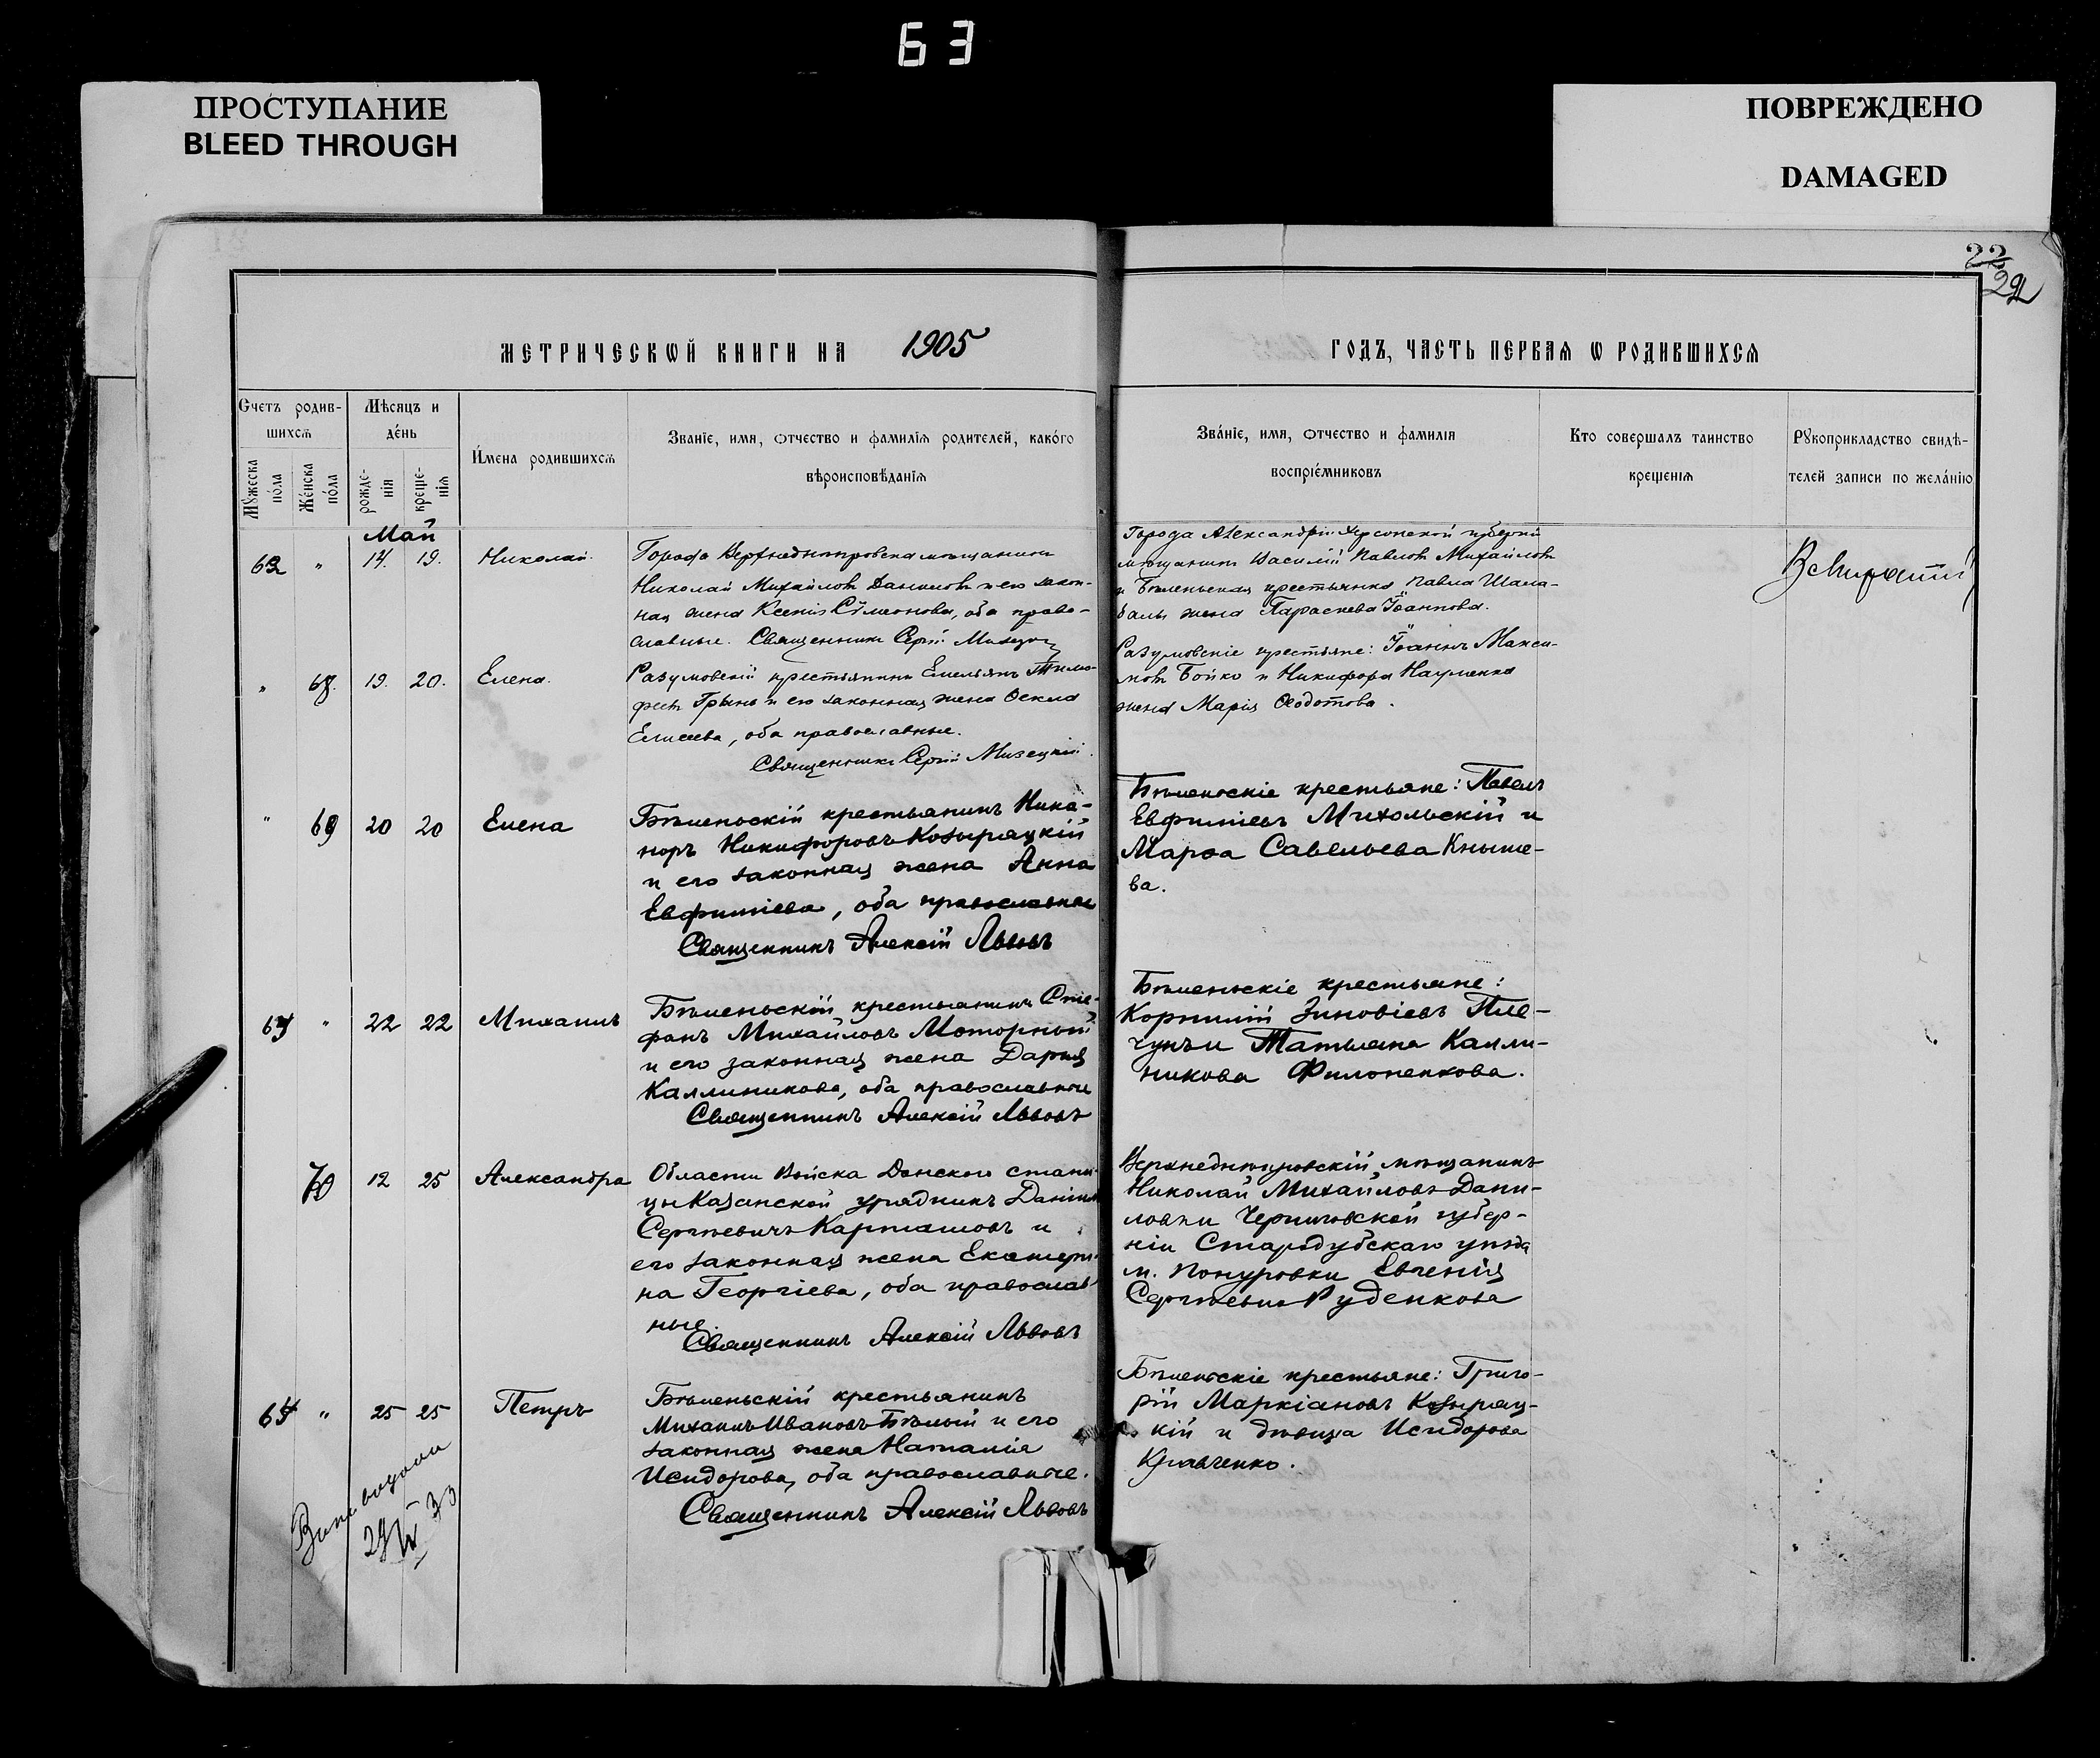 63
ПРОСТУПАНИЕ
BLEED THROUGH
ПОВРЕЖДЕНО
DAMAGED
22
22
МЕТРИЧЕСКѠЙ КНИГИ НА 1905
ГОДЪ, ЧАСТЬ ПЕРВАѦ Ѡ РОДИВШИХСѦ
Счетъ родив-
шихсѧ
Мѣсяцъ и
де́нь
Мꙋжеска
по́ла
Же́нска
по́ла
рожде-
нія
креще-
нія
И́мена родившихсѧ
Званіе, имя, отчество и фамилія родителей, како́го
вѣроисповѣданія
Зва́ніе, имя, отчество и фамилія
воспріе́мниковъ
Кто совершалъ таинство
крещенія
Рꙋкоприкладство свидѣ-
телей записи по жела́нію
Май
62 " 14. 19. Николай.
Города Верхнеднѣпровска мѣщанинъ
Николай Михайловъ Даниловъ и его закон-
ная жена Ксенія Сѵмеонова, оба право-
славные. Священникъ Сергій Мизецкій
Города Александріи Херсонской губерніи
мѣщанинъ Василій Павловъ Михайловъ
и Бѣленьская крестьянка Павла Шала-
баль жена Параскева Іоаннова.
" 68. 19. 20. Елена.
Разумовскій крестьянинъ Емельянъ Тимо-
феевъ Гринь и его законная жена Ѳекла
Елисеева, оба православные.
Священникъ Сергій Мизецкій.
Разумовскіе крестьяне: Іоаннъ Макси-
мовъ Бойко и Никифора Науменка
жена Марія Ѳеодотова.
" 69 20 20 Елена
Бѣленьскій крестьянинъ Ника-
норъ Никифоровъ Козыряцкій
и его законная жена Анна
Евфиміева, оба православные
Священникъ Алексій Львовъ
Бѣленьскіе крестьяне: Павелъ
Евфиміевъ Михольскій и
Марѳа Савельева Кныше-
ва.
63 " 22 22 Михаилъ
Бѣленьскій крестьянинъ Сте-
фанъ Михайловъ Моторный
и его законная жена Дарія
Каллиникова, оба православные
Священникъ Алексій Львовъ
Бѣленьскіе крестьяне:
Корнилій Зиновіевъ Пле-
чунъ и Татьяна Калли-
никова Филоненкова.
70 12 25 Александра
Области Войска Донского стани-
цы Казанской урядникъ Даніилъ
Сергѣевичъ Карташовъ и
его законная жена Екатери-
на Георгіева, оба православ-
ные.
Священникъ Алексій Львовъ
Верхнеднѣпровскій мѣщанинъ
Николай Михайловъ Дани-
ловъ и Черниговской губер-
ніи Стародубскаго уѣзда
м. Понуровки Евгенія
Сергѣевна Руденкова
64 " 25 25 Петръ
Бѣленьскій крестьянинъ
Михаилъ Ивановъ Бѣлый и его
законная жена Наталія
Исидорова, оба православные.
Священникъ Алексій Львовъ
Бѣленьскіе крестьяне: Григо-
рій Маркіановъ Козыряц-
кій и дѣвица Исидорова
Кравченко.